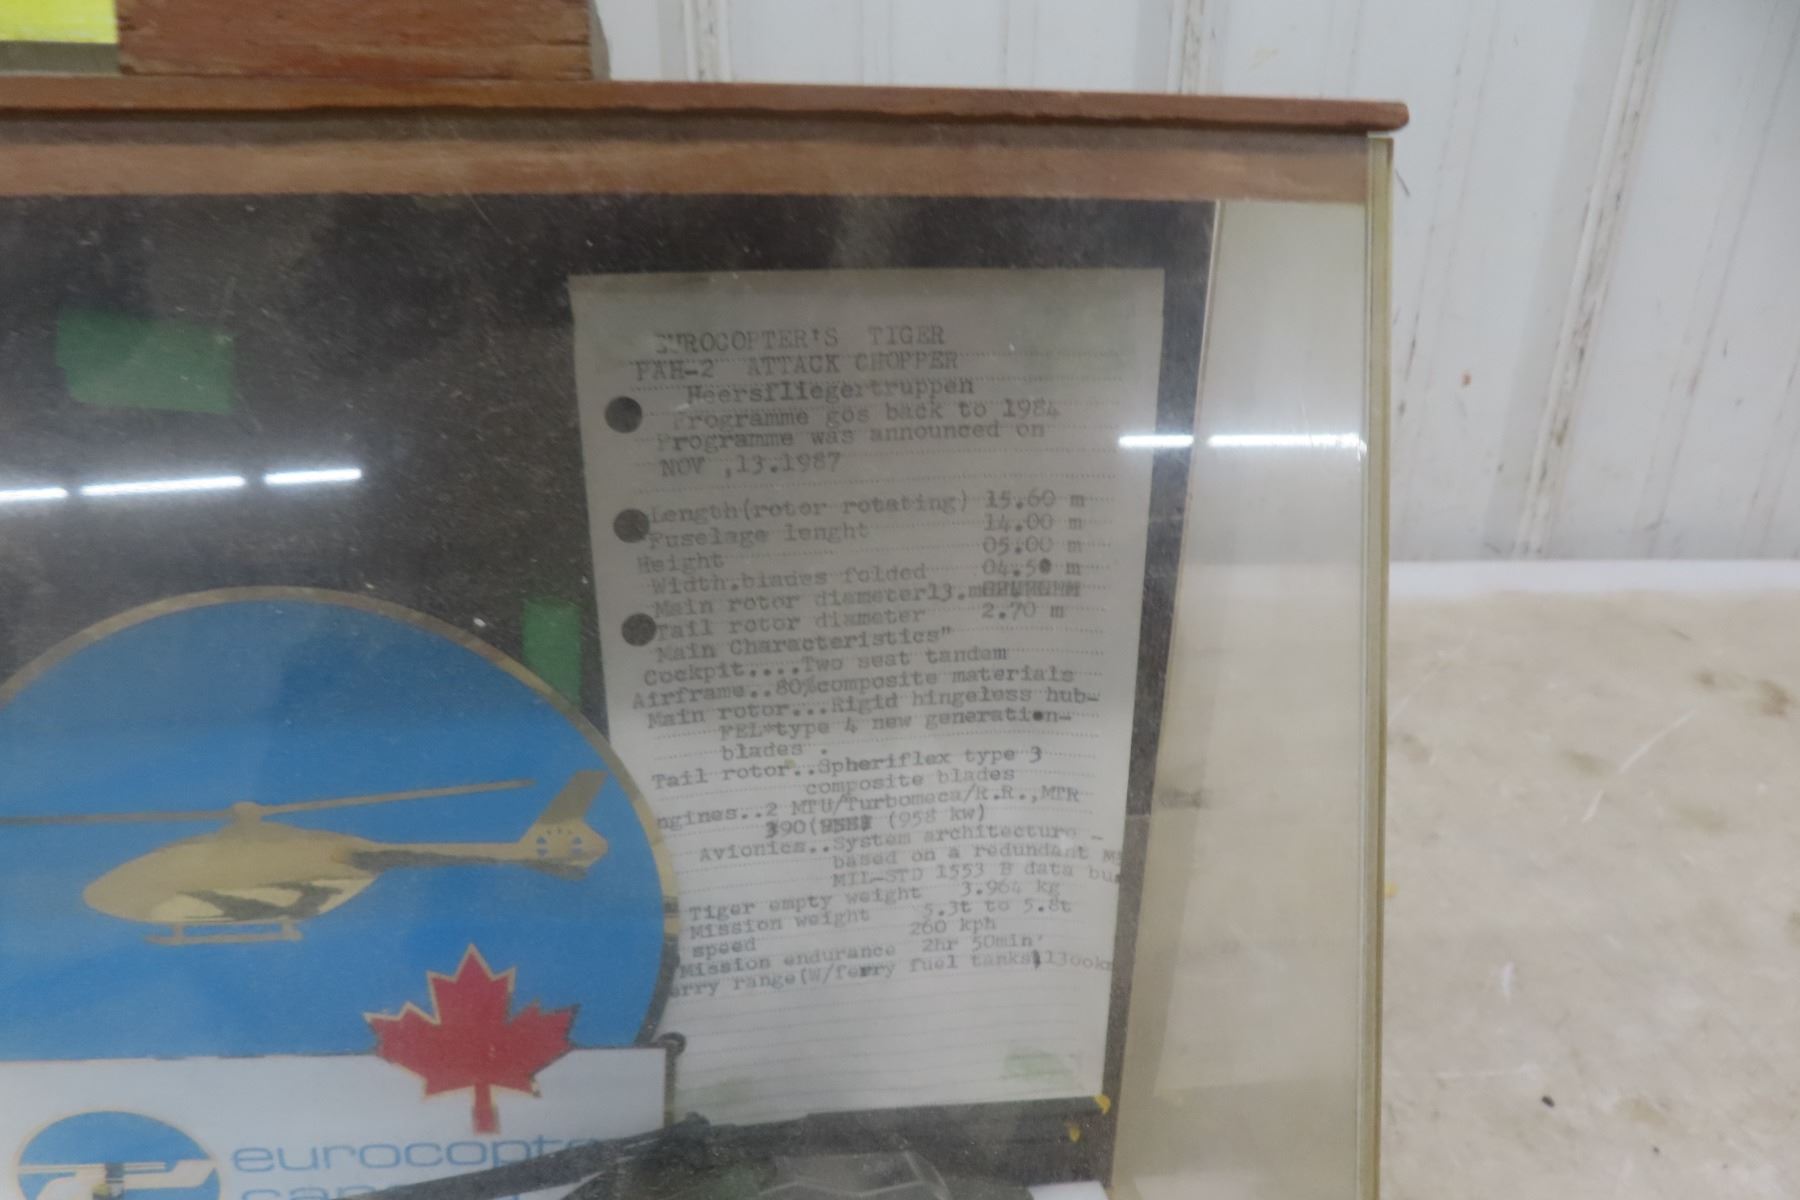 EUROCOPTER'S TIGER
PAH-2 ATTACK CHOPPER
Heersfliegertruppen
Programme gos back to 1984
Programme was announced on
NOV ,13.1987
Length(rotor rotating) 15.60 m
Fuselage lenght 14.00 m
Height 05.00 m
Width.blades folded 04.50 m
Main rotor diameter13.m
Tail rotor diameter 2.70 m
Main Characteristics"
Cockpit....Two seat tandem
Airframe..80%composite materials
Main rotor...Rigid hingeless hub-
FEL*type 4 new generation-
blades .
Tail rotor..Spheriflex type 3
composite blades
ngines..2 MTU/Turbomeca/R.R.,MTR
390( (958 kw)
Avionics..System architecture -
based on a redundant M
MIL-STD 1553 B data bu
Tiger empty weight 3.964 kg
Mission weight 5.3t to 5.8t
speed 260 kph
Mission endurance 2hr 50min'
erry range(W/ferry fuel tanks 1300k
eurocopte